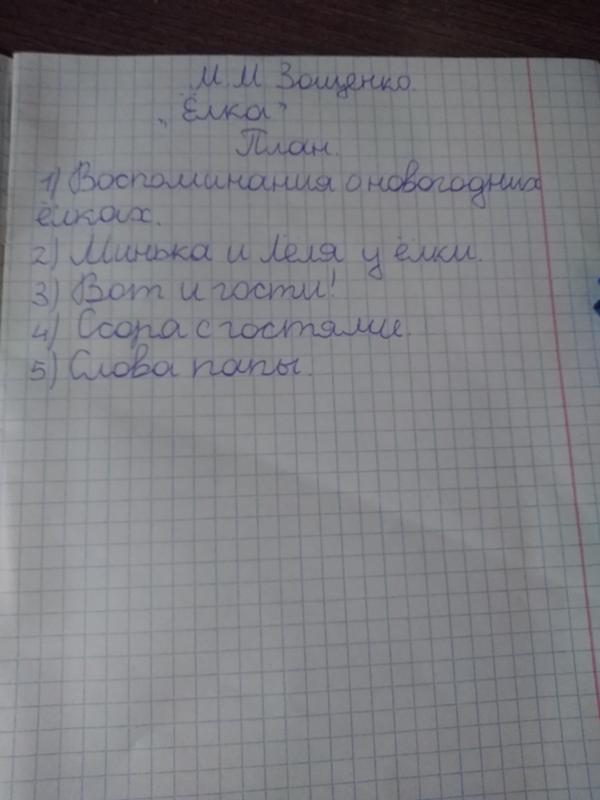 М. М Зощенко.
„Ёлка"
План.
1) Воспоминания о новогодних
ёлках.
2) Минька и Лёля у ёлки.
3) Вот и гости!
4) Ссора с гостями.
5) Слова папы.